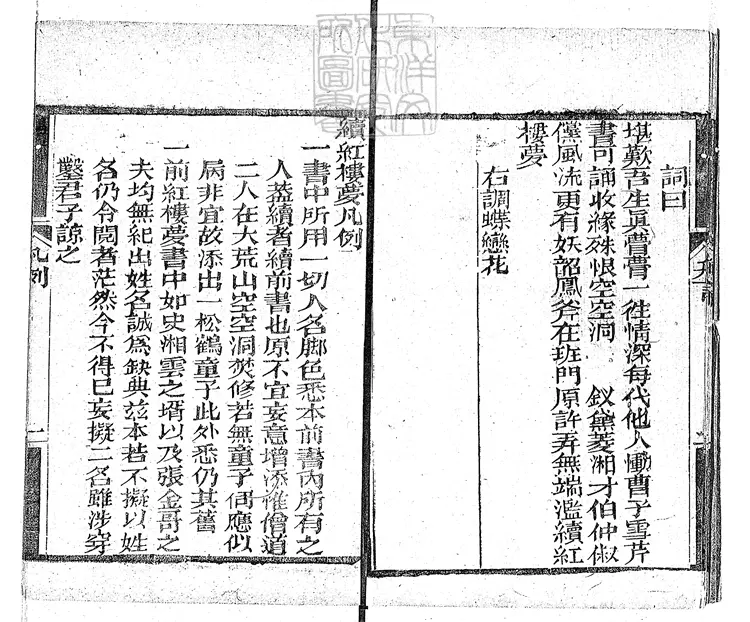 詞曰
堪歎吾生眞瞢瞢一徃情深每代他人慟曹子雪芹
書可誦收緣殊恨空空洞　釵黛菱湘才伯仲俶
儻風流更有妖韶鳳斧在班門原許弄無端濫續紅
樓夢
右調蝶戀花
續紅樓夢凡例
一書中所用一切人名脚色悉本前書內所有之
人葢續者續前書也原不宜妄意增添惟僧道
二人在大荒山空空洞焚修若無童子伺應似
屬非宜故添出一松鶴童子此外悉仍其舊
一前紅樓夢書中如史湘雲之壻以及張金哥之
夫均無紀出姓名誠爲缺典兹本若不擬以姓
名仍令閱者茫然今不得已妄擬二名雖涉穿
鑿君子諒之
凡例
一